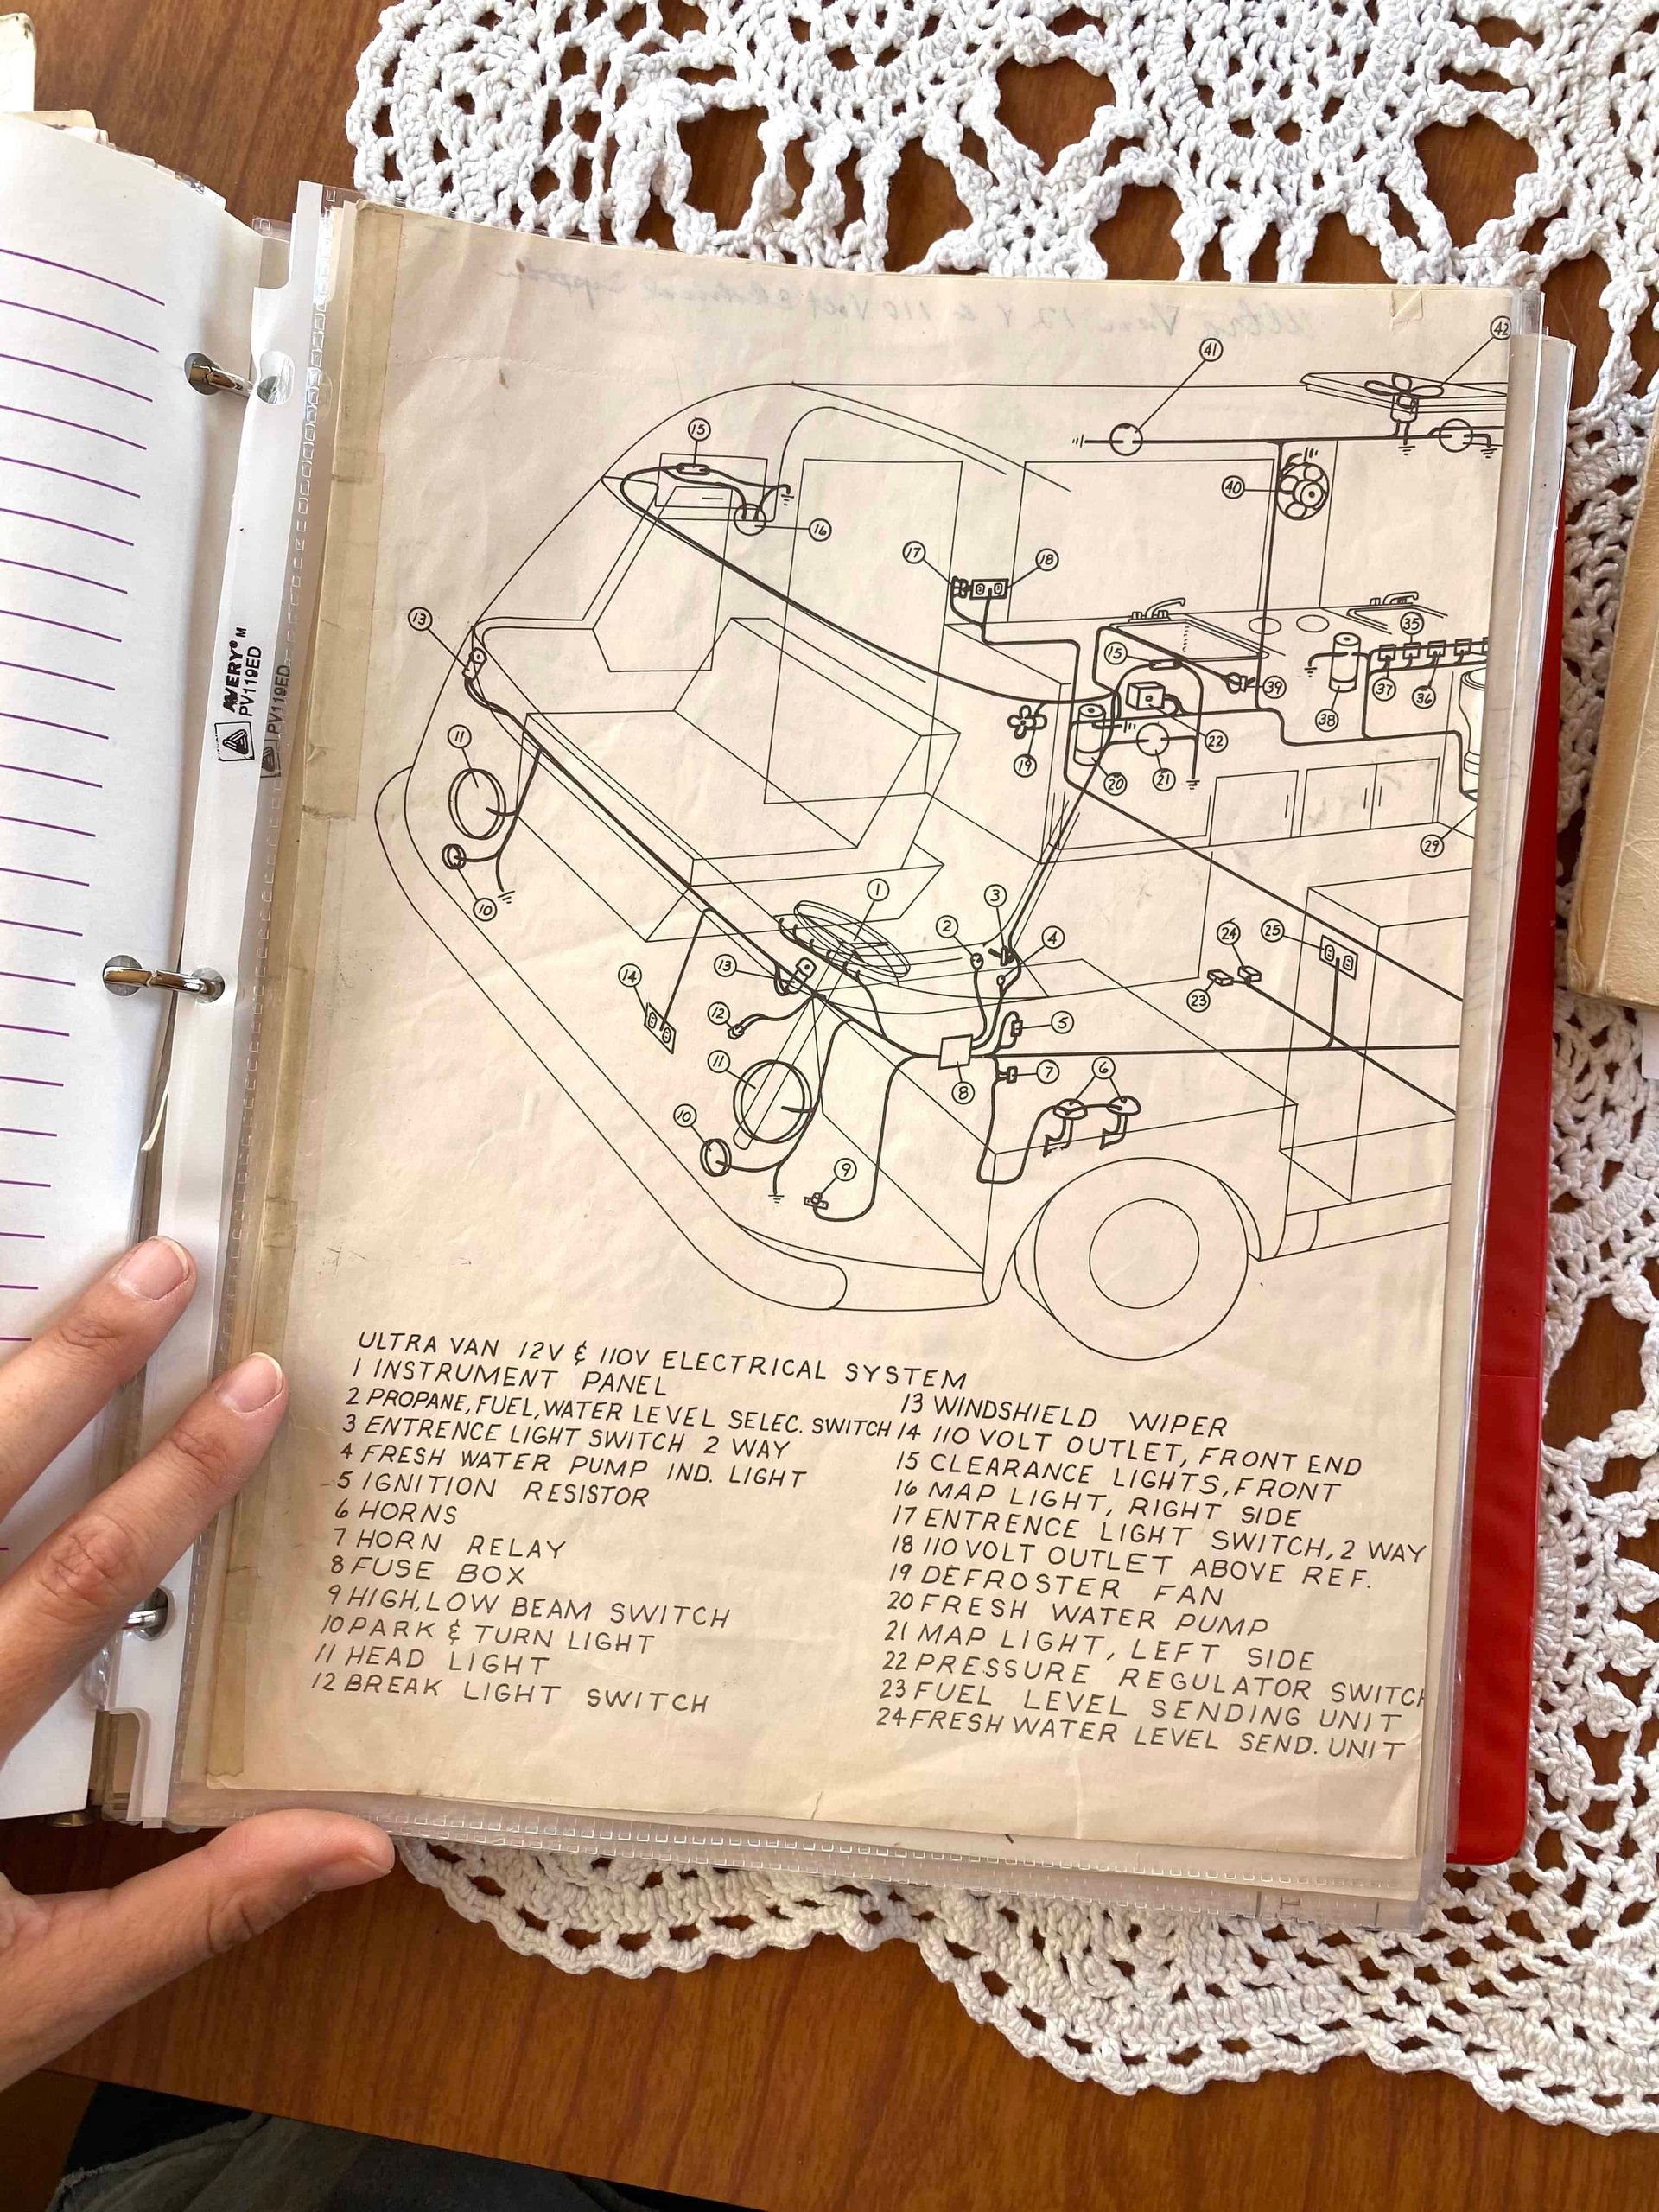 Ultra Van 12 V & 110 Volt Electrical
41
42
15
40
16
17
18
13
35
15
39
37
36
38
11
22
19
20
21
29
10
1
3
2
4
24
25
13
14
23
12
5
11
7
6
8
10
9
AVERY® M
PV119ED
PV119ED
ULTRA VAN 12V & 110V ELECTRICAL SYSTEM
1 INSTRUMENT PANEL
2 PROPANE, FUEL, WATER LEVEL SELEC. SWITCH
3 ENTRENCE LIGHT SWITCH 2 WAY
4 FRESH WATER PUMP IND. LIGHT
5 IGNITION RESISTOR
6 HORNS
7 HORN RELAY
8 FUSE BOX
9 HIGH, LOW BEAM SWITCH
10 PARK & TURN LIGHT
11 HEAD LIGHT
12 BREAK LIGHT SWITCH
13 WINDSHIELD WIPER
14 110 VOLT OUTLET, FRONT END
15 CLEARANCE LIGHTS, FRONT
16 MAP LIGHT, RIGHT SIDE
17 ENTRENCE LIGHT SWITCH, 2 WAY
18 110 VOLT OUTLET ABOVE REF.
19 DEFROSTER FAN
20 FRESH WATER PUMP
21 MAP LIGHT, LEFT SIDE
22 PRESSURE REGULATOR SWITCH
23 FUEL LEVEL SENDING UNIT
24 FRESH WATER LEVEL SEND. UNIT